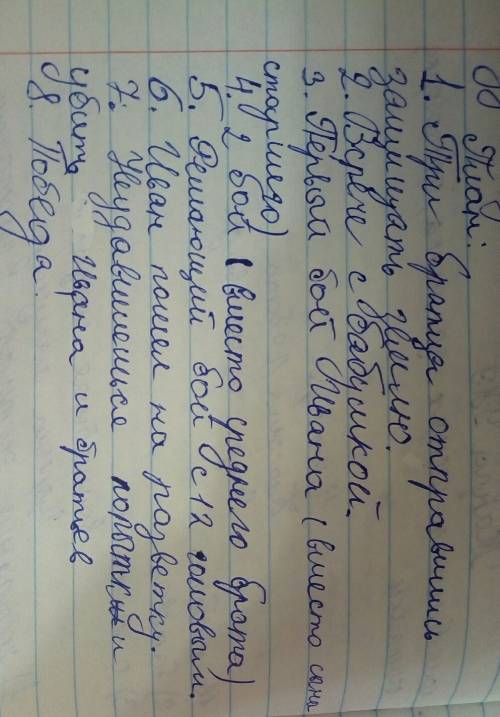 План:
1. Три братца отправились
защищать землю.
2. Встреча с бабушкой.
3. Первый бой Ивана (вместо сына
старшего)
4. 2 бой (вместо среднего брата)
5. Решающий бой с 12 головым.
6. Иван пошел на разветку.
7. Неудавшиеься попытки
убить Ивана и братьев
8. Победа.